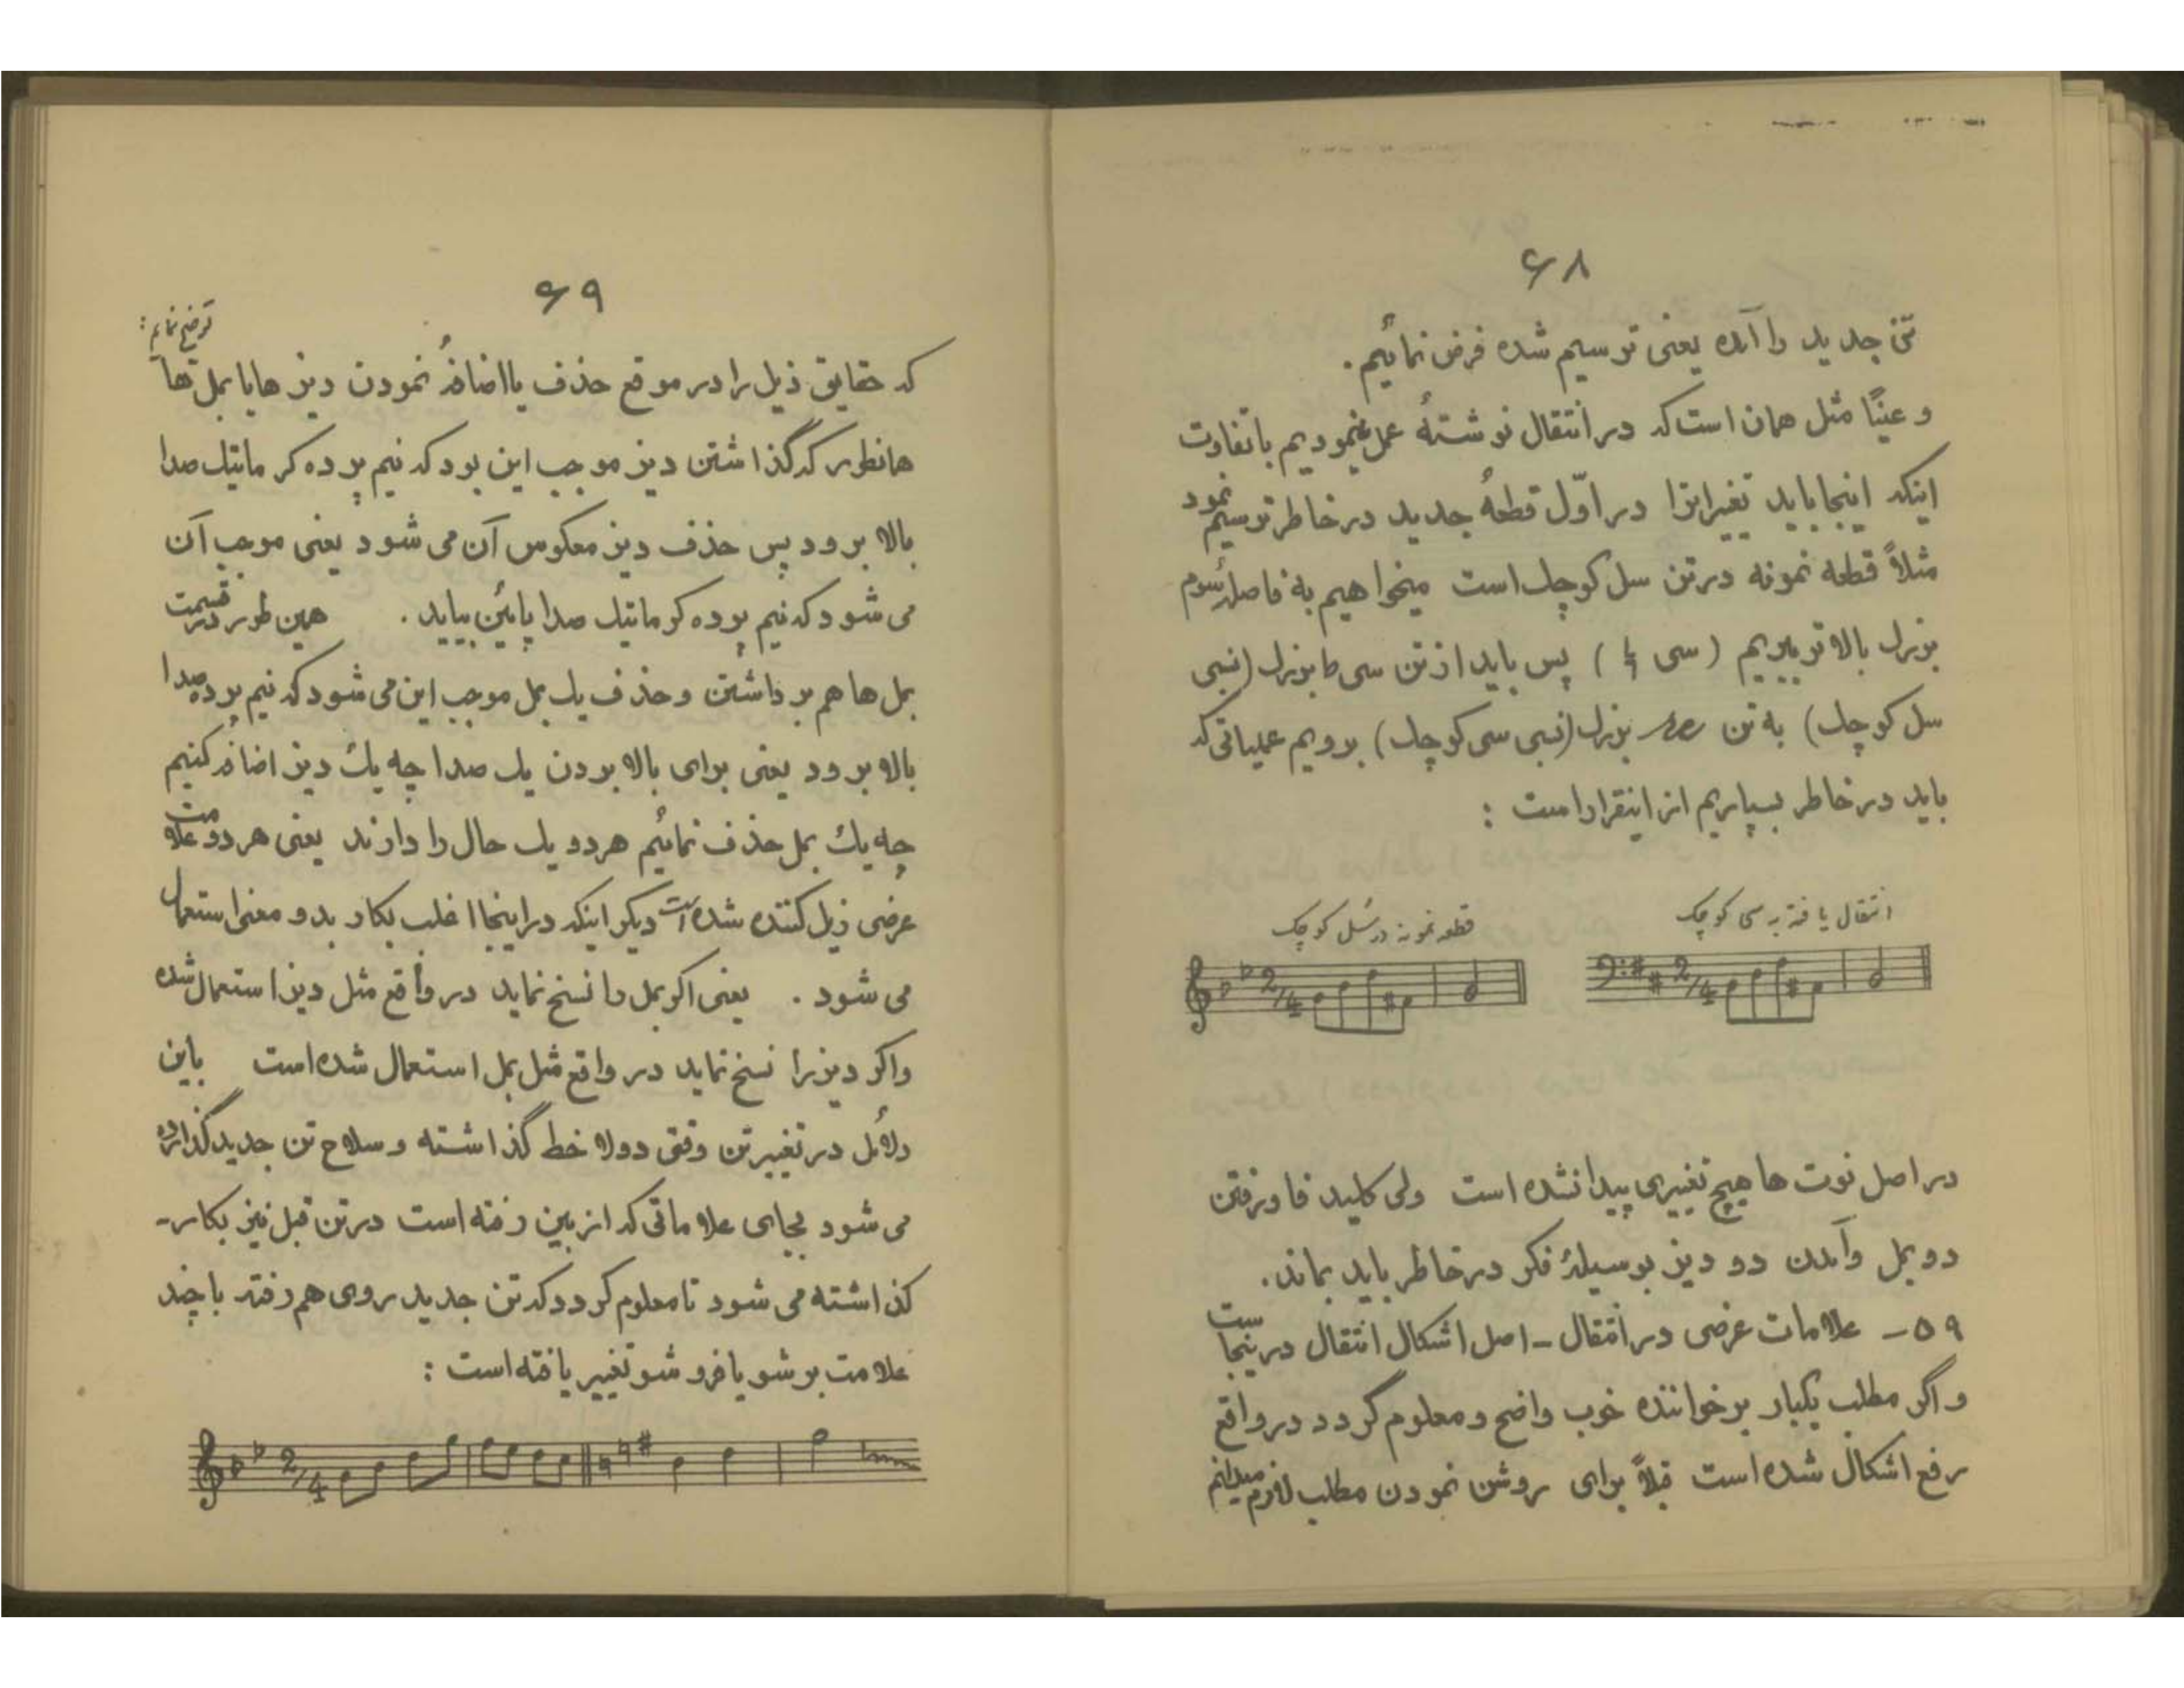 ۶۸
تن جدید را آمده یعنی توسیم شده فرض نمائیم.
و عینًا مثل همان است که در انتقال نوشتهٔ عمل نمودیم باتفاوت
اینکه اینجا باید تغیرابرا در اوّل قطعهٔ جدید در خاطر توسیم نمود
مثلاً قطعه نمونه در تن سل کوچك است میخواهیم به فاصلهٔ سوم
بزرك بالا تر ببریم ( سی ) پس باید از تن سی ط بزرك (نسبی
سل کوچك) به تن بزرك (نسبی سی کوچك) برویم عملیاتی که
باید در خاطر بسپاریم از اینقرار است :
انتقال یافته به سی کوچک
قطعه نمونه در سُل کوچک
2/4
2/4
در اصل نوت ها هیچ تغییری پیدا نشده است ولی کلید فا و رفتن
دو بمل و آمدن دو دیز بوسیلهٔ فکر در خاطر باید بماند.
۵۹ – علامات عرضی در انتقال – اصل اشکال انتقال در ینجاست
و اگر مطلب یکبار بر خواننده خوب واضح و معلوم گردد در واقع
رفع اشکال شده است قبلاً برای روشن نمودن مطلب لازم میدانم
۶۹
که حقایق ذیل را در موقع حذف یا اضافهٔ نمودن دیز ها یا بمل ها توضیح نمایم :
همانطور که گذاشتن دیز موجب این بود که نیم پرده کرماتیك صدا
بالا برود پس حذف دیز معکوس آن می شود یعنی موجب آن
می شود که نیم پرده کرماتیك صدا پایئن بیاید . همین طور در قسمت
بمل ها هم بر داشتن و حذف یك بمل موجب این می شود که نیم پرده صدا
بالا برود یعنی برای بالا بردن یك صدا چه یك دیز اضافه کنیم
چه یك بمل حذف نمائیم هر دو یك حال را دارند یعنی هر دو علامت
عرضی زیل کننده شده است دیگر اینکه در اینجا اغلب بکار بدو معنی استعمال
می شود . یعنی اگر بمل را نسخ نماید در واقع مثل دیز استعمال شده
و اگر دیز را نسخ نماید در واقع مثل بمل استعمال شده است باین
دلائل در تغییر تن وقتی دولا خط گذاشته و سلاح تن جدید گذارده
می شود بجای علاماتی که از بین رفته است در تن قبل نیز بکار-
گذاشته می شود تا معلوم گردد که تن جدید روی هم رفته با چند
علامت بر شو یا فرو شو تغییر یافته است :
2/4